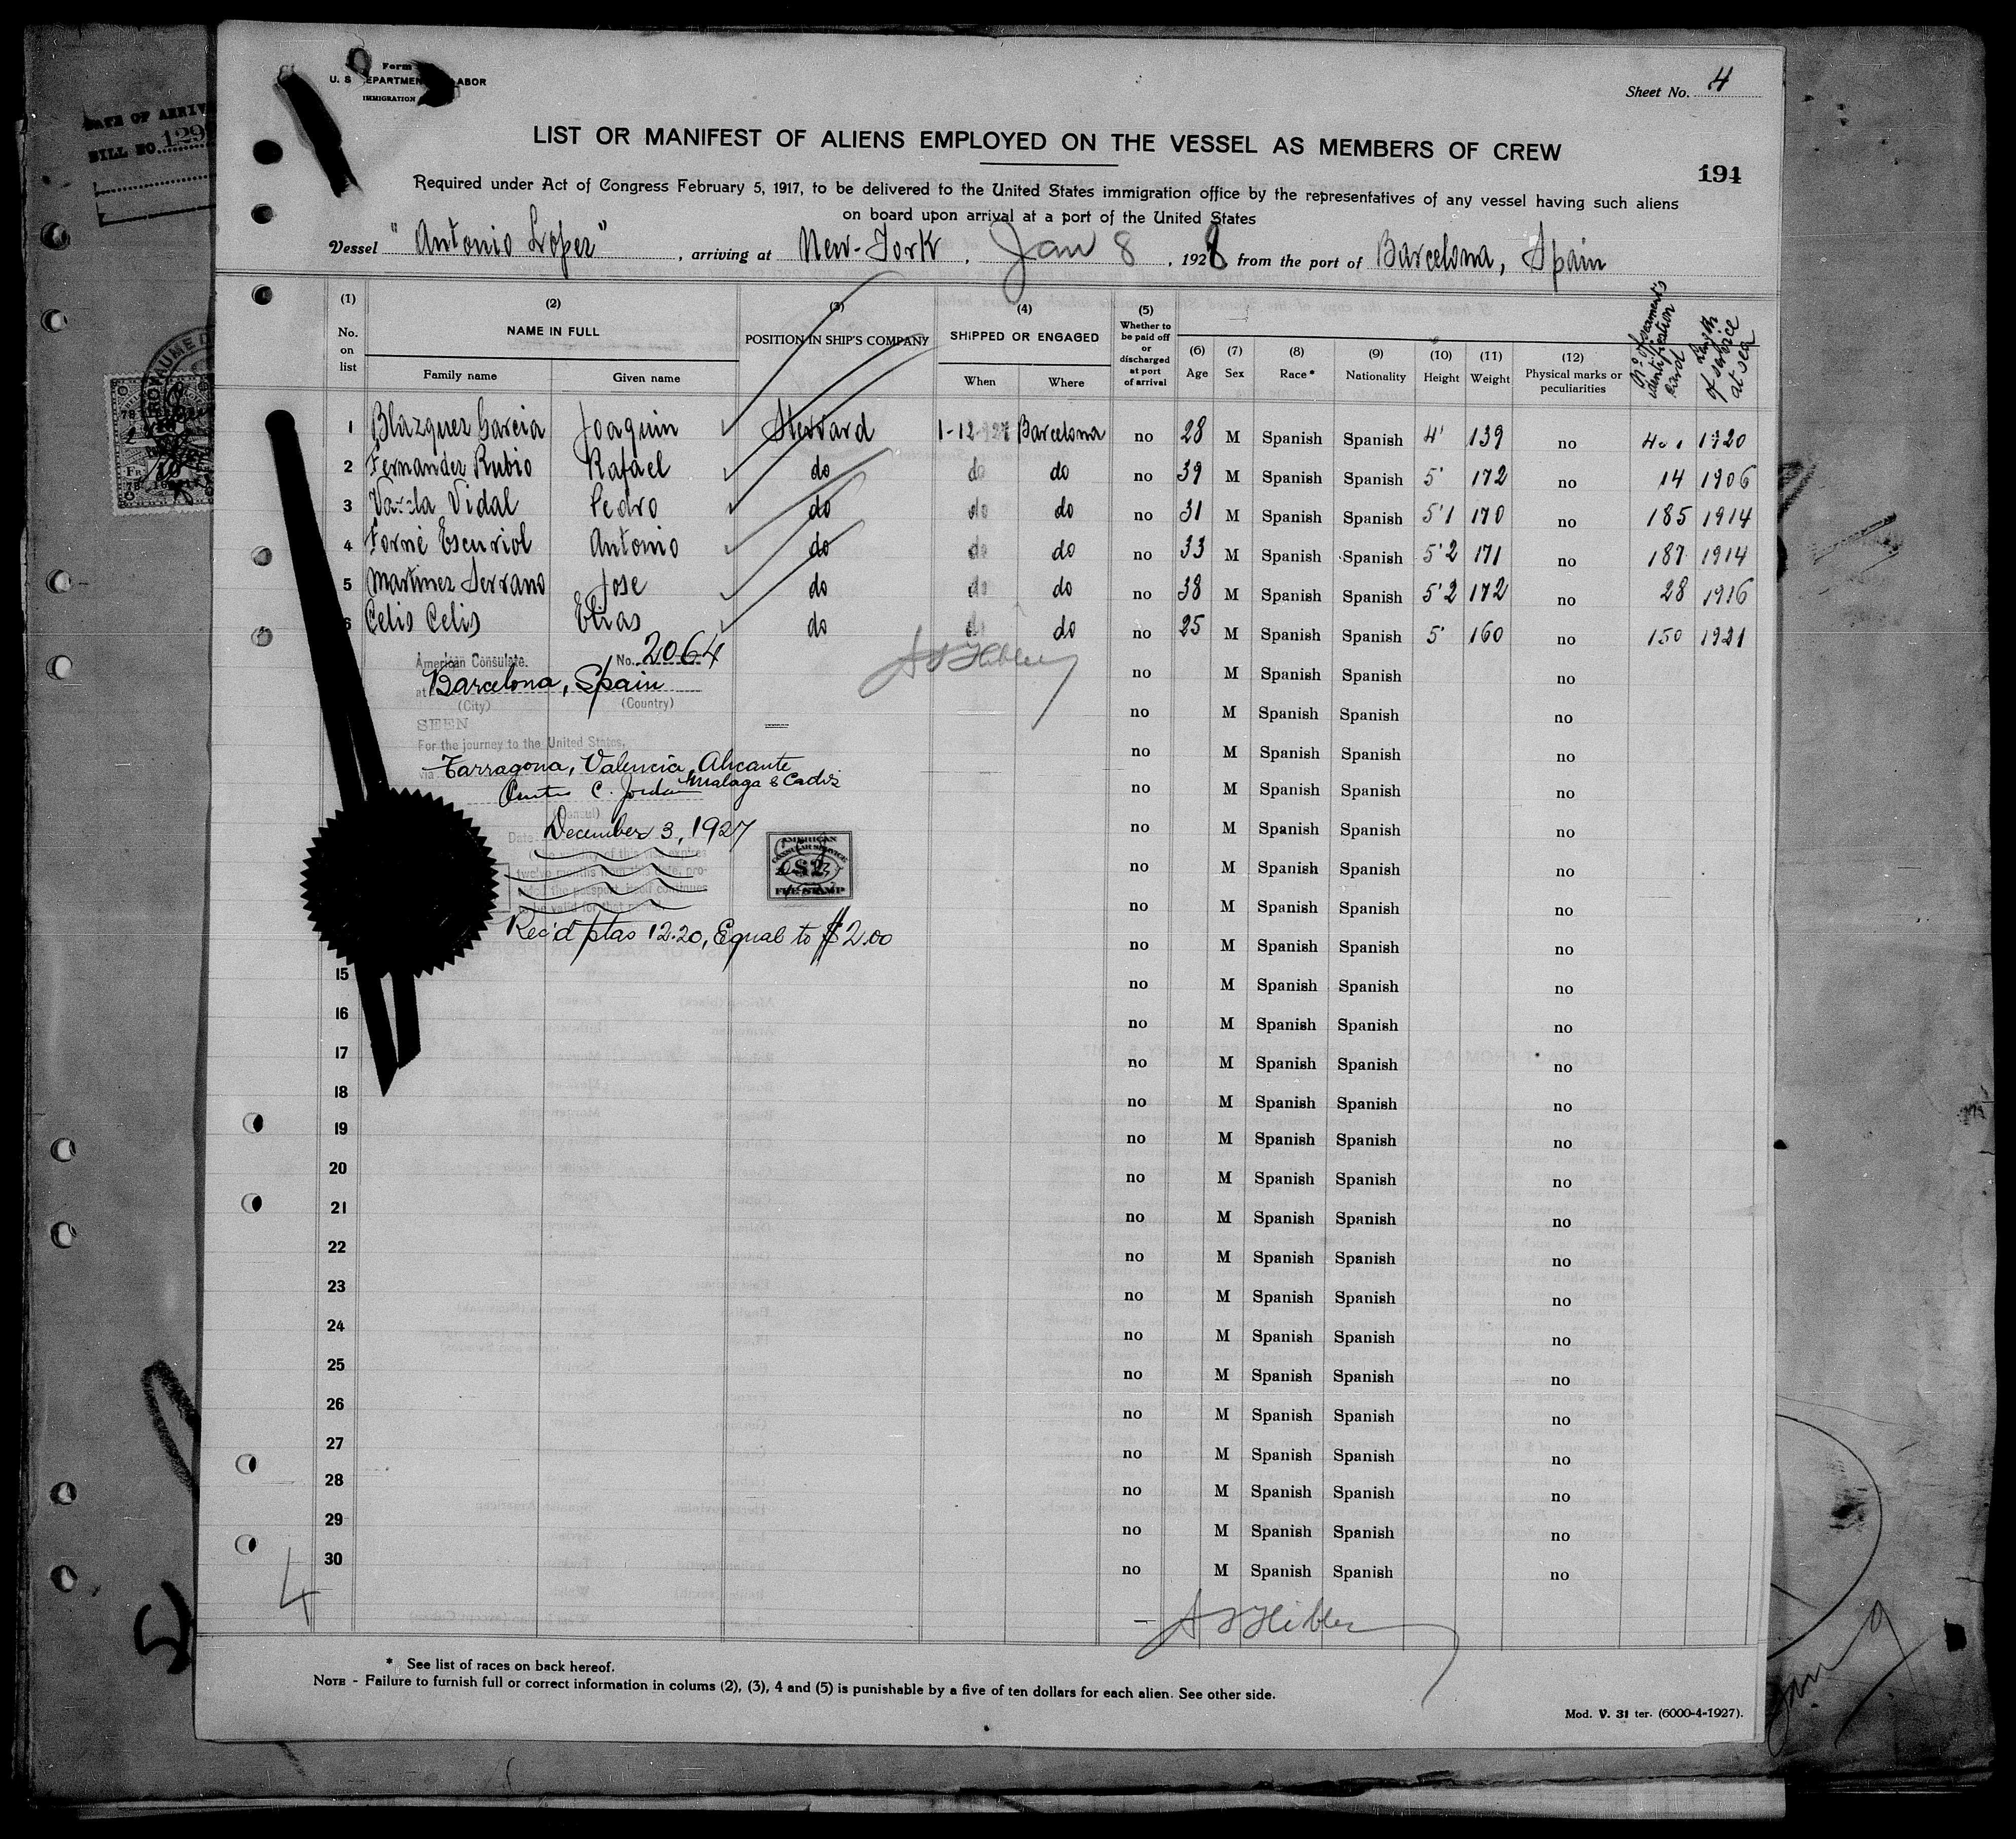 DATE OF ARRIV
BILL NO. 129
Form
U. S. DEPARTMENT LABOR
IMMIGRATION
Sheet No. 4
LIST OR MANIFEST OF ALIENS EMPLOYED ON THE VESSEL AS MEMBERS OF CREW
191
Required under Act of Congress February 5, 1917, to be delivered to the United States immigration office by the representatives of any vessel having such aliens
on board upon arrival at a port of the United States
Vessel "Antonio Lopez", arriving at New-York, Jan 8, 1928 from the port of Barcelona, Spain
(1) No. on list (2) NAME IN FULL Family name Given name (3) POSITION IN SHIP'S COMPANY (4) SHIPPED OR ENGAGED When Where (5) Whether to be paid off or discharged at port of arrival (6) Age (7) Sex (8) Race* (9) Nationality (10) Height (11) Weight (12) Physical marks or peculiarities Nº of seamen's identification card Length of service at sea
1 Blazquez Garcia Joaquin Steward 1-12-927 Barcelona no 28 M Spanish Spanish 4' 139 no 1920
2 Fernandez Rubio Rafael do do do no 39 M Spanish Spanish 5' 172 no 14 1906
3 Varela Vidal Pedro do do do no 31 M Spanish Spanish 5'1 170 no 185 1914
4 Forné Escuriol Antonio do do do no 33 M Spanish Spanish 5'2 171 no 187 1914
5 Martinez Serrano Jose do do do no 38 M Spanish Spanish 5'2 172 no 28 1916
6 Celis Celis Elias do do do no 25 M Spanish Spanish 5' 160 no 150 1921
American Consulate. No. 2064
no M Spanish Spanish no
at Barcelona, Spain
(City) (Country)
no M Spanish Spanish no
SEEN
For the journey to the United States,
no M Spanish Spanish no
via Tarragona, Valencia, Alicante
Malaga & Cadiz
no M Spanish Spanish no
(Consul)
Date December 3, 1927
no M Spanish Spanish no
(The validity of this visa expires
twelve months from this date, pro-
vided the passport itself continues
to be valid for that period.)
AMERICAN
CONSULAR SERVICE
$2
FEE STAMP
no M Spanish Spanish no
no M Spanish Spanish no
Rec'd ptas 12.20, Equal to $2.00
no M Spanish Spanish no
15 no M Spanish Spanish no
16 no M Spanish Spanish no
17 no M Spanish Spanish no
18 no M Spanish Spanish no
19 no M Spanish Spanish no
20 no M Spanish Spanish no
21 no M Spanish Spanish no
22 no M Spanish Spanish no
23 no M Spanish Spanish no
24 no M Spanish Spanish no
25 no M Spanish Spanish no
26 no M Spanish Spanish no
27 no M Spanish Spanish no
28 no M Spanish Spanish no
29 no M Spanish Spanish no
30 no M Spanish Spanish no
4
* See list of races on back hereof.
NOTE - Failure to furnish full or correct information in colums (2), (3), 4 and (5) is punishable by a five of ten dollars for each alien. See other side.
Mod. V. 31 ter. (6000-4-1927).